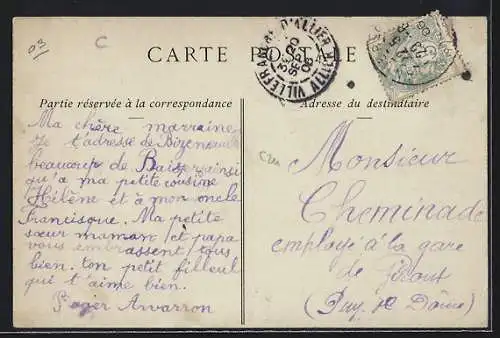 03
C
CARTE POSTALE
VILLEFRANCHE D'ALLIER ALLIER
20
SEPT
06
Partie réservée à la correspondance
Adresse du destinataire
Ma chère marraine
Je t'adresse de Bizeneuille
beaucoup de Baisers ainsi
qu'a ma petite cousine
Hélène et à mon oncle
Francisque. Ma petite
sœur maman et papa
vous embrassent tous
bien. ton petit filleul
qui t'aime bien.
Roger Arvarron
Monsieur
Cheminade
employé à la gare
de
(Puy de Dôme)